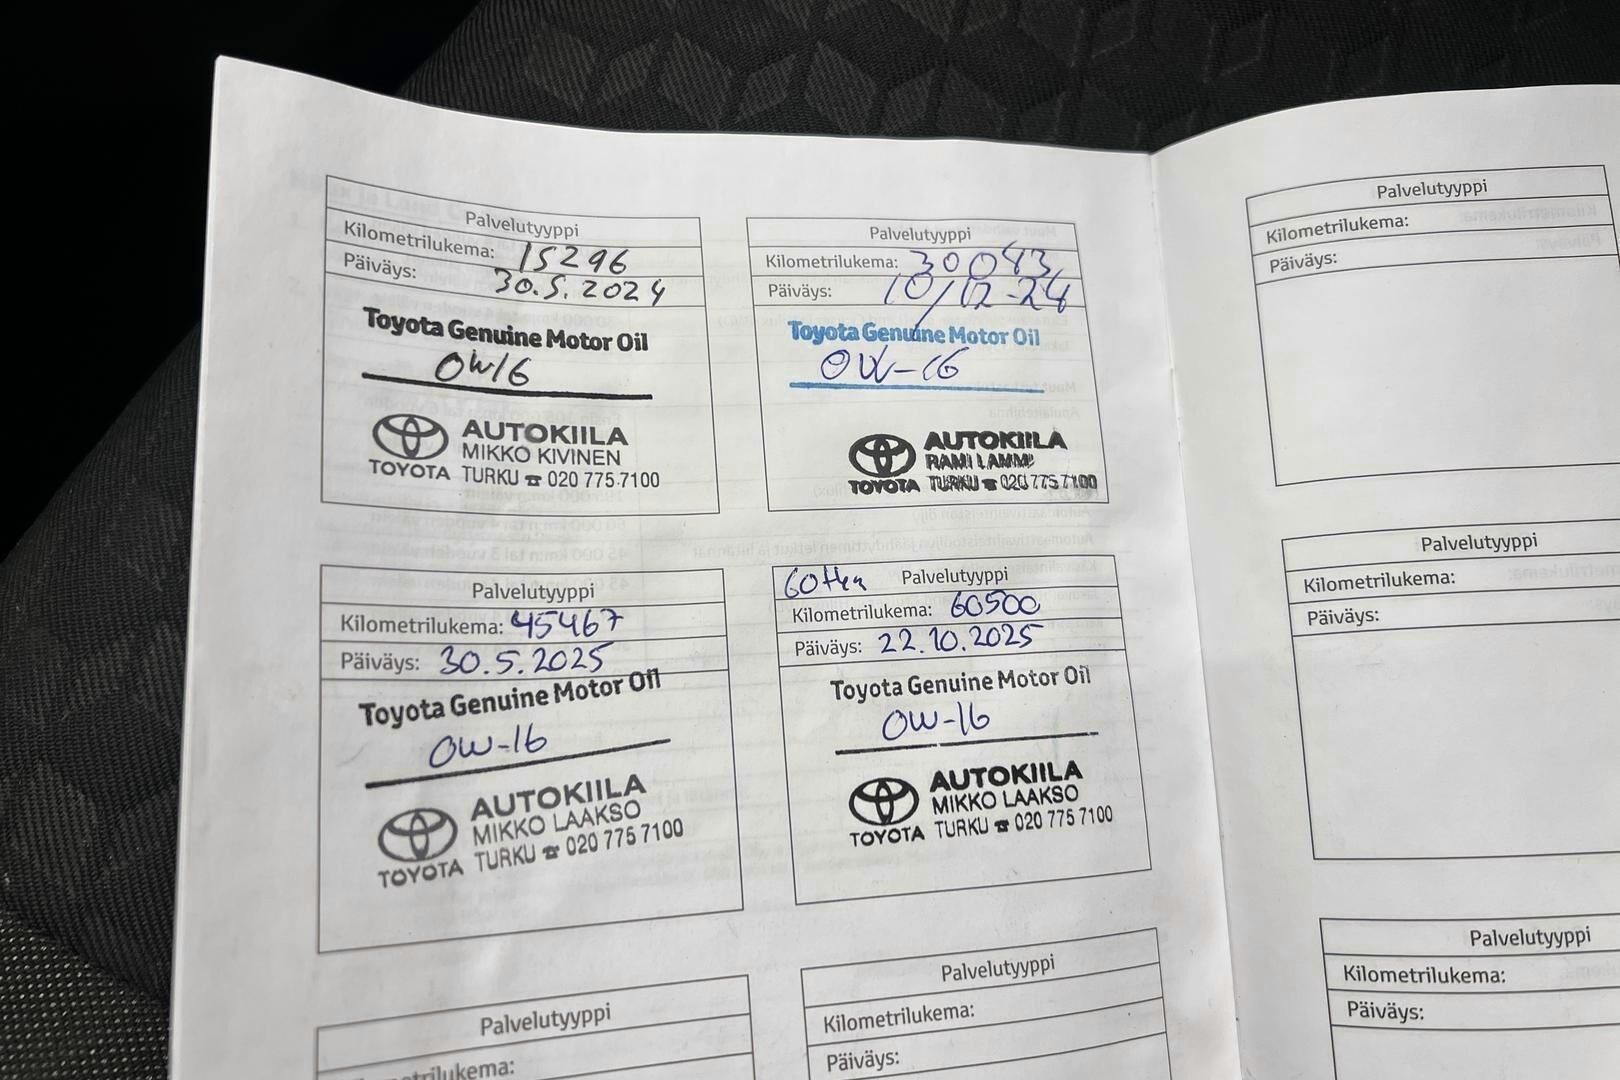 Palvelutyyppi
Kilometrilukema: 15296
Päiväys: 30.5.2024
Toyota Genuine Motor Oil
0W16
AUTOKIILA
MIKKO KIVINEN
TOYOTA TURKU ☎ 020 775 7100
Palvelutyyppi
Kilometrilukema: 30043
Päiväys: 10/12-24
Toyota Genuine Motor Oil
0W-16
AUTOKIILA
RAMI LAMMI
TOYOTA TURKU ☎ 020 775 7100
Palvelutyyppi
Kilometrilukema: 45467
Päiväys: 30.5.2025
Toyota Genuine Motor Oil
0W-16
AUTOKIILA
MIKKO LAAKSO
TOYOTA TURKU ☎ 020 775 7100
Palvelutyyppi
Kilometrilukema: 60500
Päiväys: 22.10.2025
Toyota Genuine Motor Oil
0W-16
AUTOKIILA
MIKKO LAAKSO
TOYOTA TURKU ☎ 020 775 7100
Palvelutyyppi
Palvelutyyppi
Kilometrilukema:
Päiväys:
Palvelutyyppi
Kilometrilukema:
Päiväys:
Palvelutyyppi
Kilometrilukema:
Päiväys:
Palvelutyyppi
Kilometrilukema:
Päiväys: